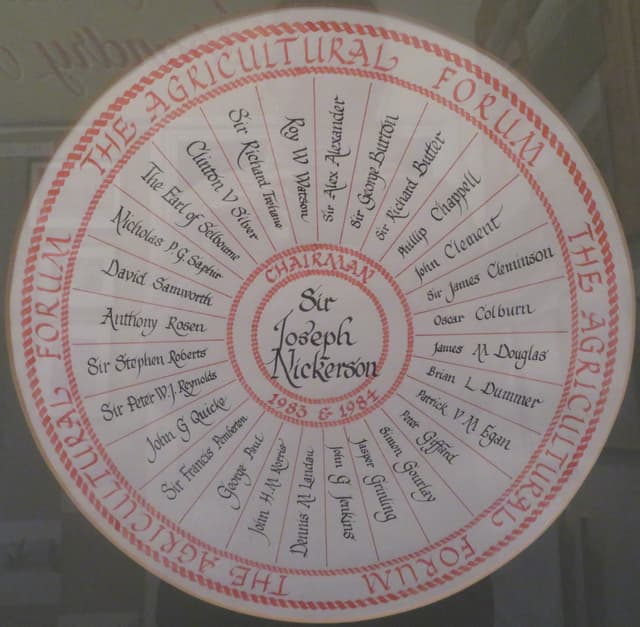 THE AGRICULTURAL FORUM
THE AGRICULTURAL FORUM
THE AGRICULTURAL FORUM
CHAIRMAN
Sir
Joseph
Nickerson
1983 & 1984
Sir Alex Alexander
Sir George Burton
Sir Richard Butler
Phillip Chappell
John Clement
Sir James Cleminson
Oscar Colburn
James M Douglas
Brian L Dummer
Patrick V M Egan
Peter Giffard
Simon Gourlay
Jasper Grinling
John G Jenkins
Dennis M Landau
John H.M. Norris
George Paul
Sir Francis Pemberton
John G Quicke
Sir Peter W.J. Reynolds
Sir Stephen Roberts
Anthony Rosen
David Samworth
Nicholas P.G. Saphir
The Earl of Selbourne
Clinton V Silver
Sir Richard Trehane
Roy W Watson